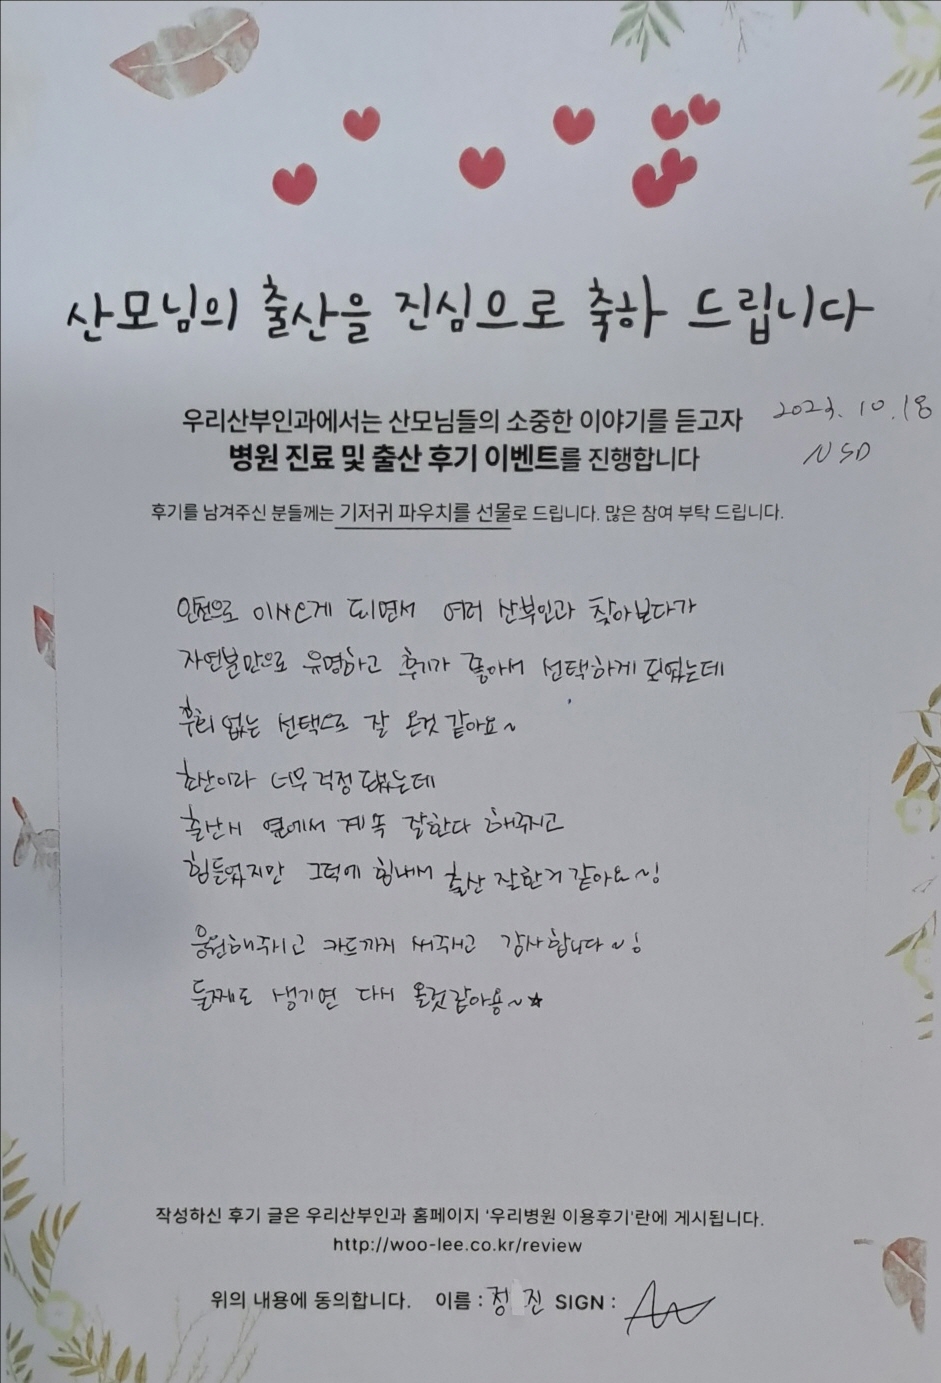 산모님의 출산을 진심으로 축하 드립니다
우리산부인과에서는 산모님들의 소중한 이야기를 듣고자
2023. 10. 18
병원 진료 및 출산 후기 이벤트를 진행합니다
NSD
후기를 남겨주신 분들께는 기저귀 파우치를 선물로 드립니다. 많은 참여 부탁 드립니다.
인천으로 이사오게 되면서 여러 산부인과 찾아보다가
자연분만으로 유명하고 후기가 좋아서 선택하게 되었는데
후회 없는 선택으로 잘 온것 같아요~
초산이라 너무 걱정 됐었는데
출산시 옆에서 계속 잘한다 해주시고
힘들었지만 그덕에 힘내서 출산 잘한거 같아요~!
응원해주시고 카드까지 써주시고 감사합니다~!
둘째도 생기면 다시 올것같아용~★
작성하신 후기 글은 우리산부인과 홈페이지 '우리병원 이용후기'란에 게시됩니다.
http://woo-lee.co.kr/review
위의 내용에 동의합니다. 이름 : 정 진 SIGN :